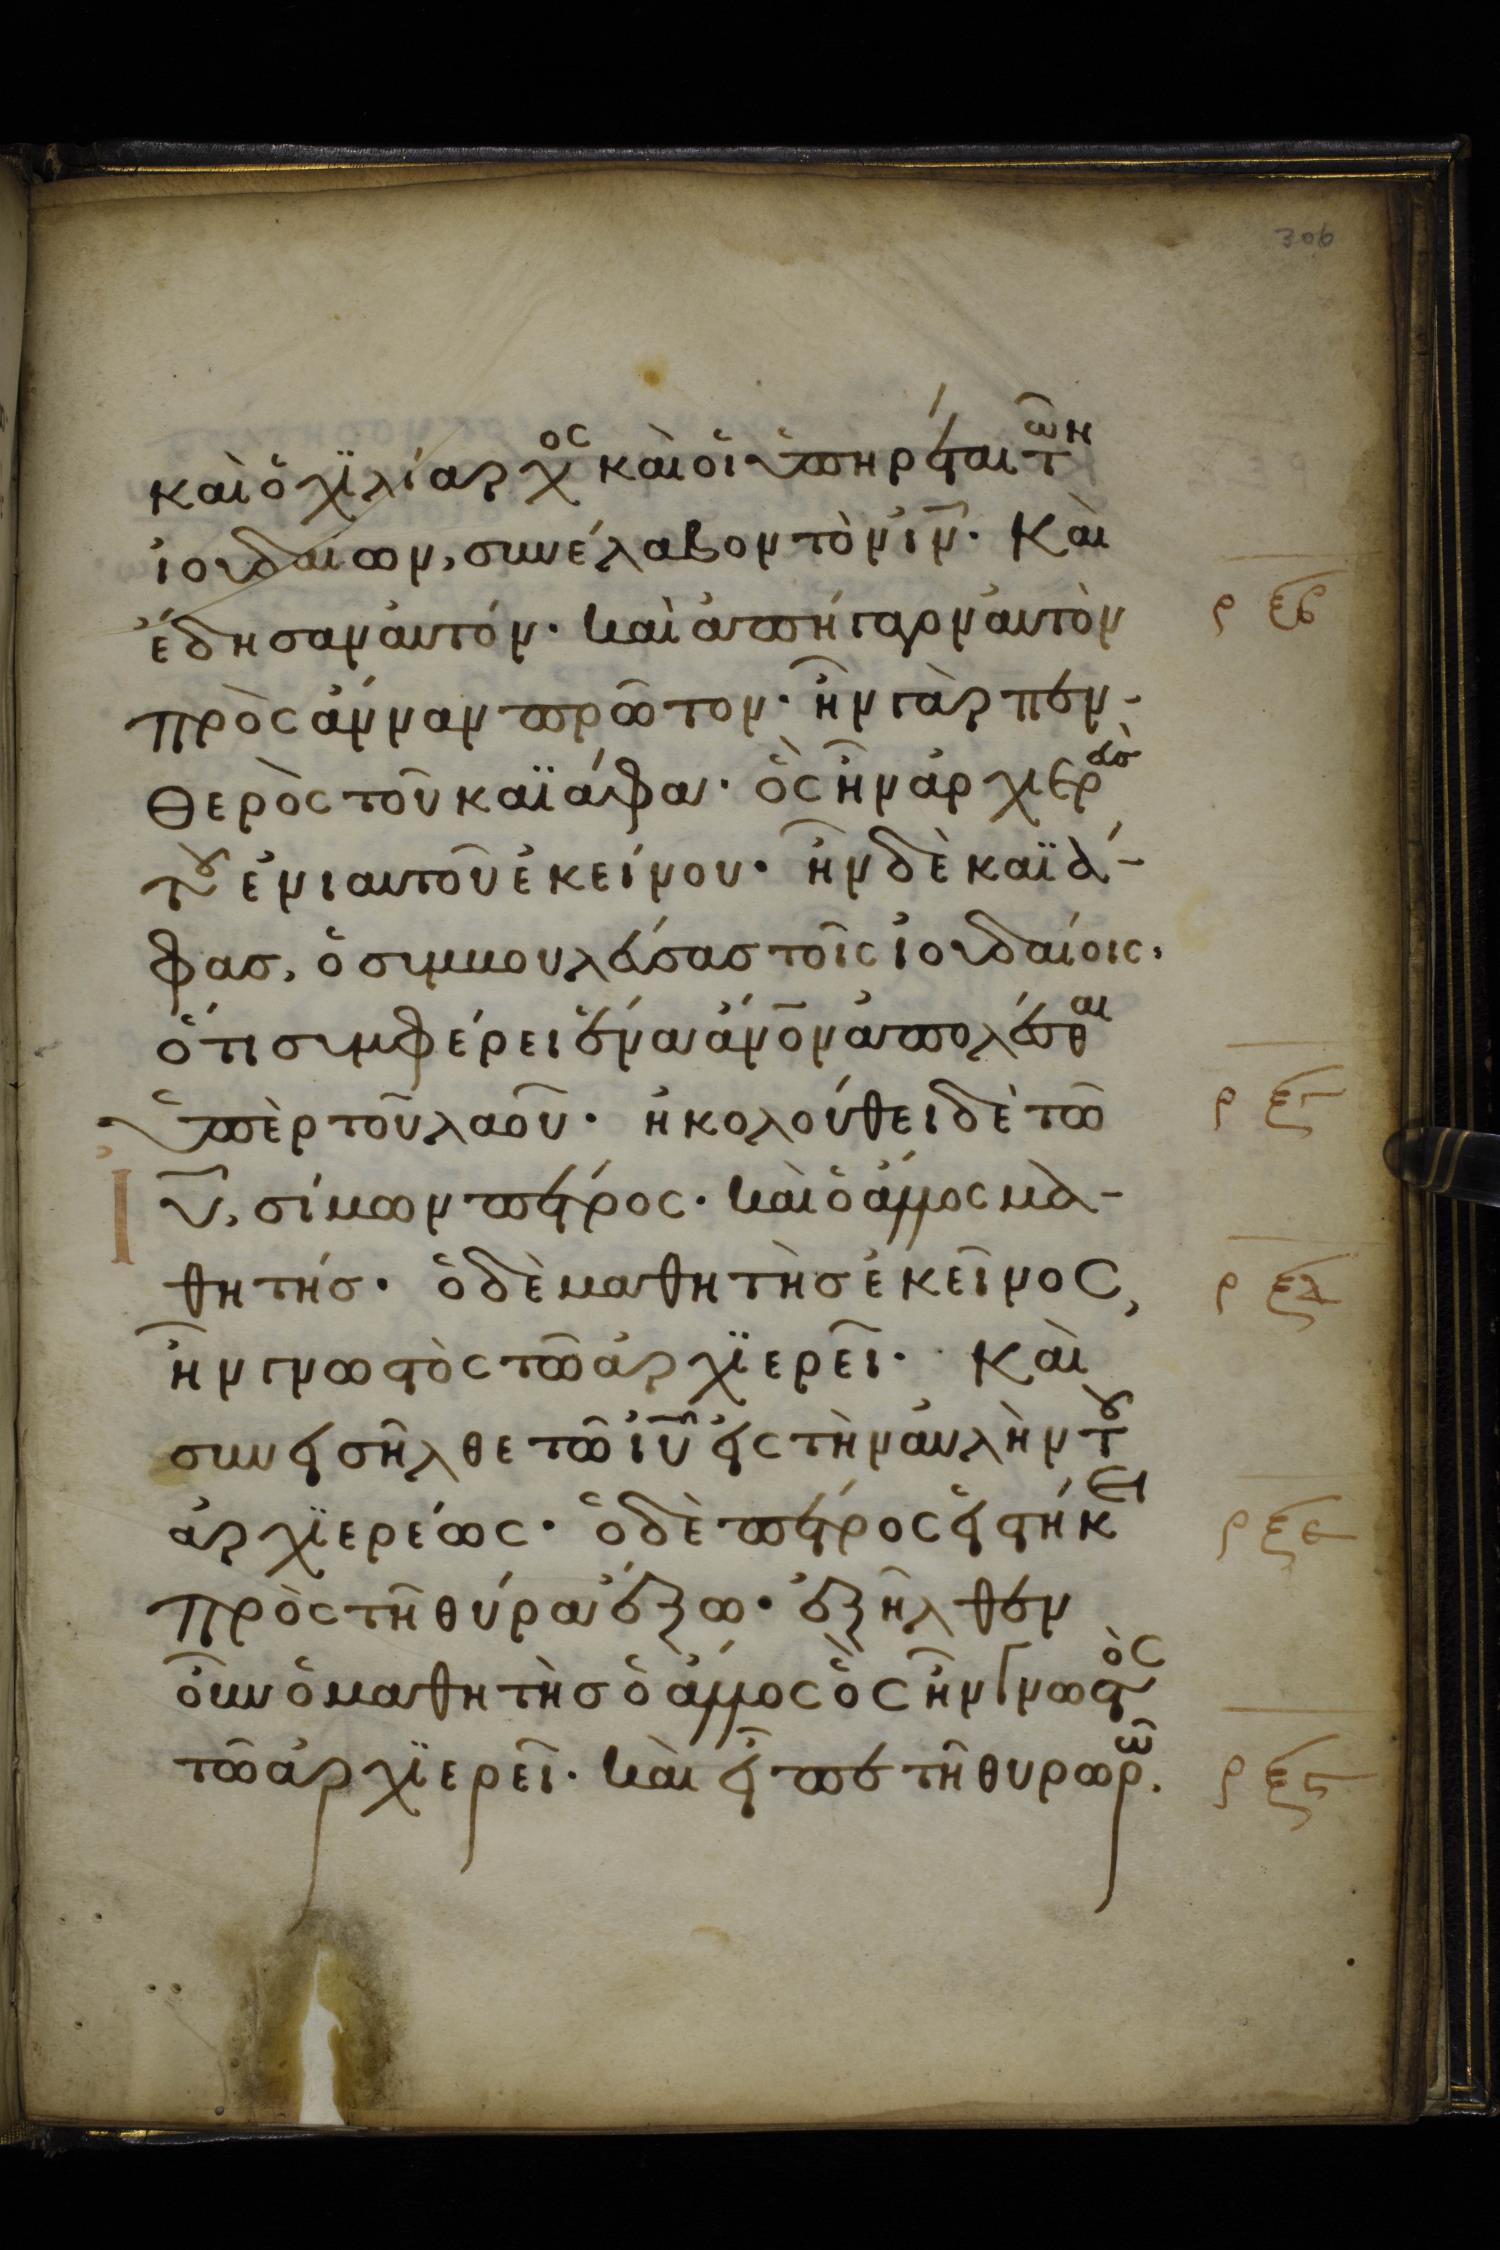 306
καὶ ὁ χϊλίαρχος καὶ οἱ ὑπηρέται τῶν
ἰουδαίων, συνέλαβον τὸν ἰν̅. Καὶ
ἔδησαν αὐτόν. καὶ ἀπήγαγον αὐτὸν
ρξβ
πρὸς ἄνναν πρῶτον. ἦν γὰρ πεν-
θερὸς τοῦ καϊάφα. ὃς ἦν ἀρχιερεὺς
τοῦ ἐνιαυτοῦ ἐκείνου. ἦν δὲ καϊά-
φας, ὁ συμβουλεύσας τοῖς ἰουδαίοις,
ὅτι συμφέρει ἕνα ἄνον̅ ἀπολέσθαι
ὑπὲρ τοῦ λαοῦ. ἠκολούθει δὲ τῶ
ρξγ
Ἰυ̅, σίμων πέτρος. καὶ ὁ ἄλλος μα-
θητής. ὁ δὲ μαθητὴς ἐκεῖνος,
ρξδ
ἦν γνωστὸς τῶ ἀρχϊερεῖ. Καὶ
συνεισῆλθε τῶ ἰυ̅ εἰς τὴν αὐλὴν τοῦ
ἀρχϊερέως. ὁ δὲ πέτρος εἱστήκει
ρξε
πρὸς τῆ θύρα ἔξω. ἐξῆλθεν
οὖν ὁ μαθητὴς ὁ ἄλλος ὃς ἦν γνωστὸς
τῶ ἀρχϊερεῖ. καὶ εἶπε τῆ θυρωρῶ.
ρξς